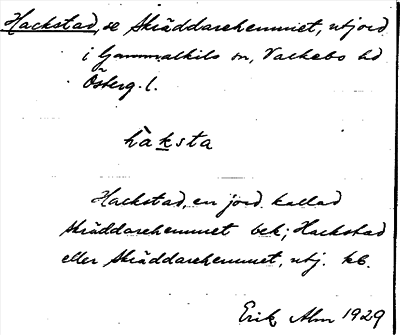 Hackstad, se Skräddarehemmet, utjord
i Gammalkils sn, Valkebo hd
Österg. l.
hàksta
Hackstad, en jord kallad
Skräddarehemmet bek; Hackstad
eller Skräddarehemmet, utj. kb.
Erik Alm 1929